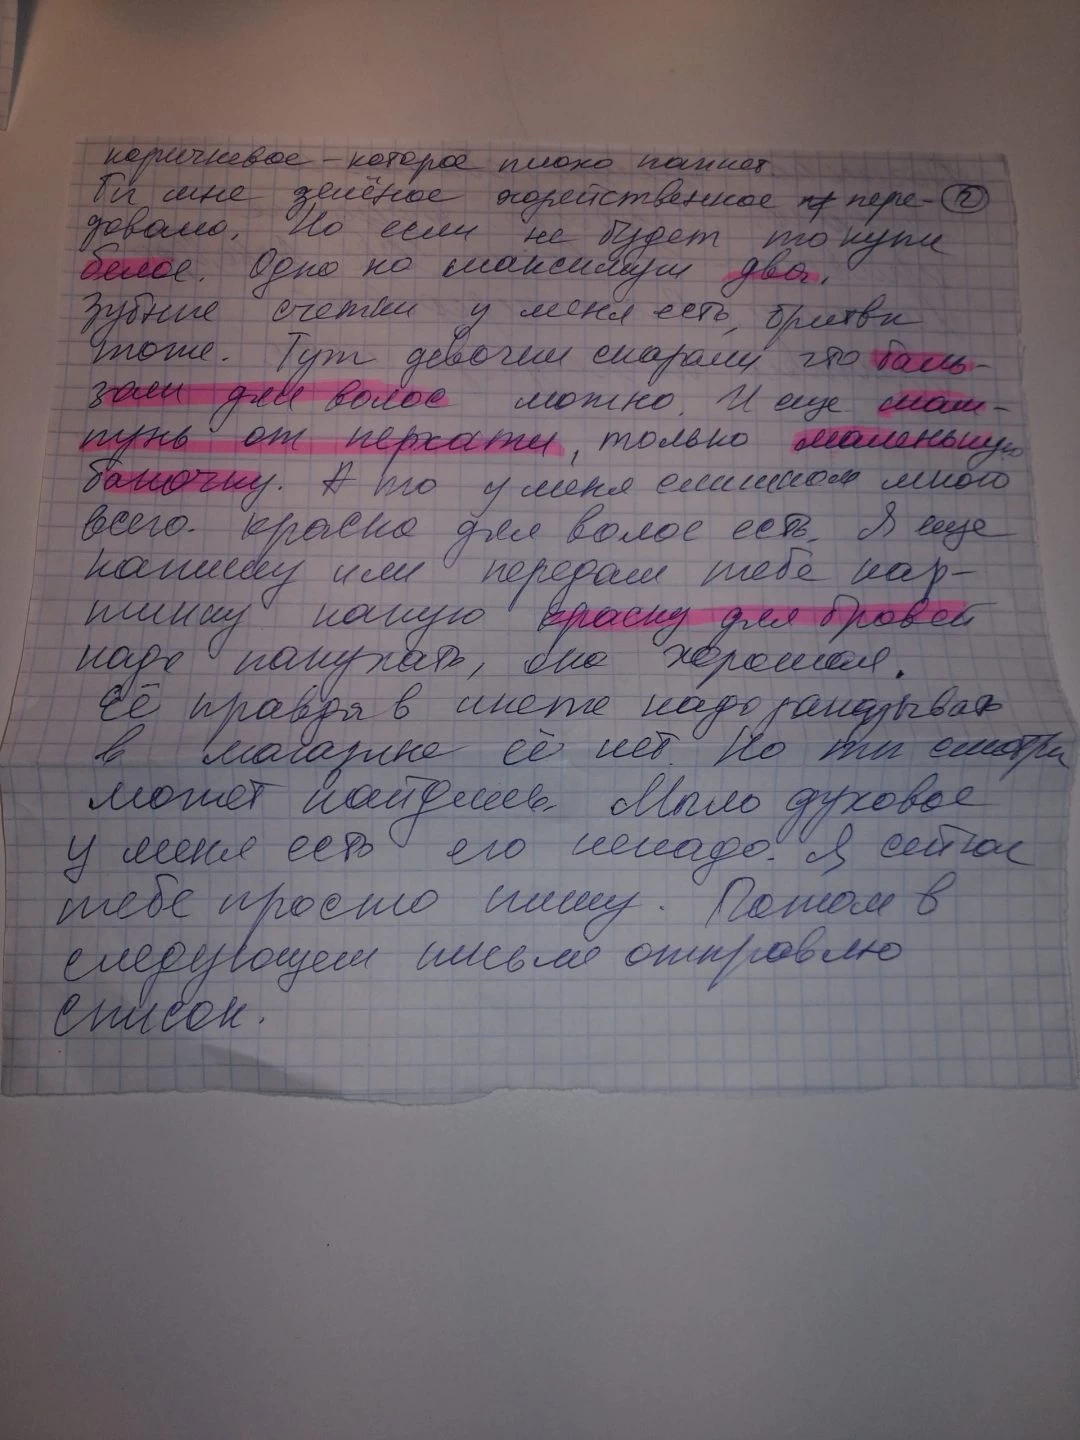 коричневое – которое плохо пахнет.
Ты мне зелёное хозяйственное пере- (2)
довала. Но если не будет то купи
белое. Одно но максимум два.
Зубные счетки у меня есть, бритвы
тоже. Тут девочки сказали что баль-
зам для волос можно. И еще шам-
пунь от перхоти, только маленькую
баночку. А то у меня слишком много
всего. краска для волос есть. Я еще
напишу или передам тебе кар-
тинку какую краску для бровей
надо покупать, она хорошая.
Её правда в инете надо заказывать
в магазине её нет. Но ты смотри
может найдешь. Мыло духовое
у меня есть его ненадо. Я сейчас
тебе просто пишу. Потом в
следующем письме отправлю
список.